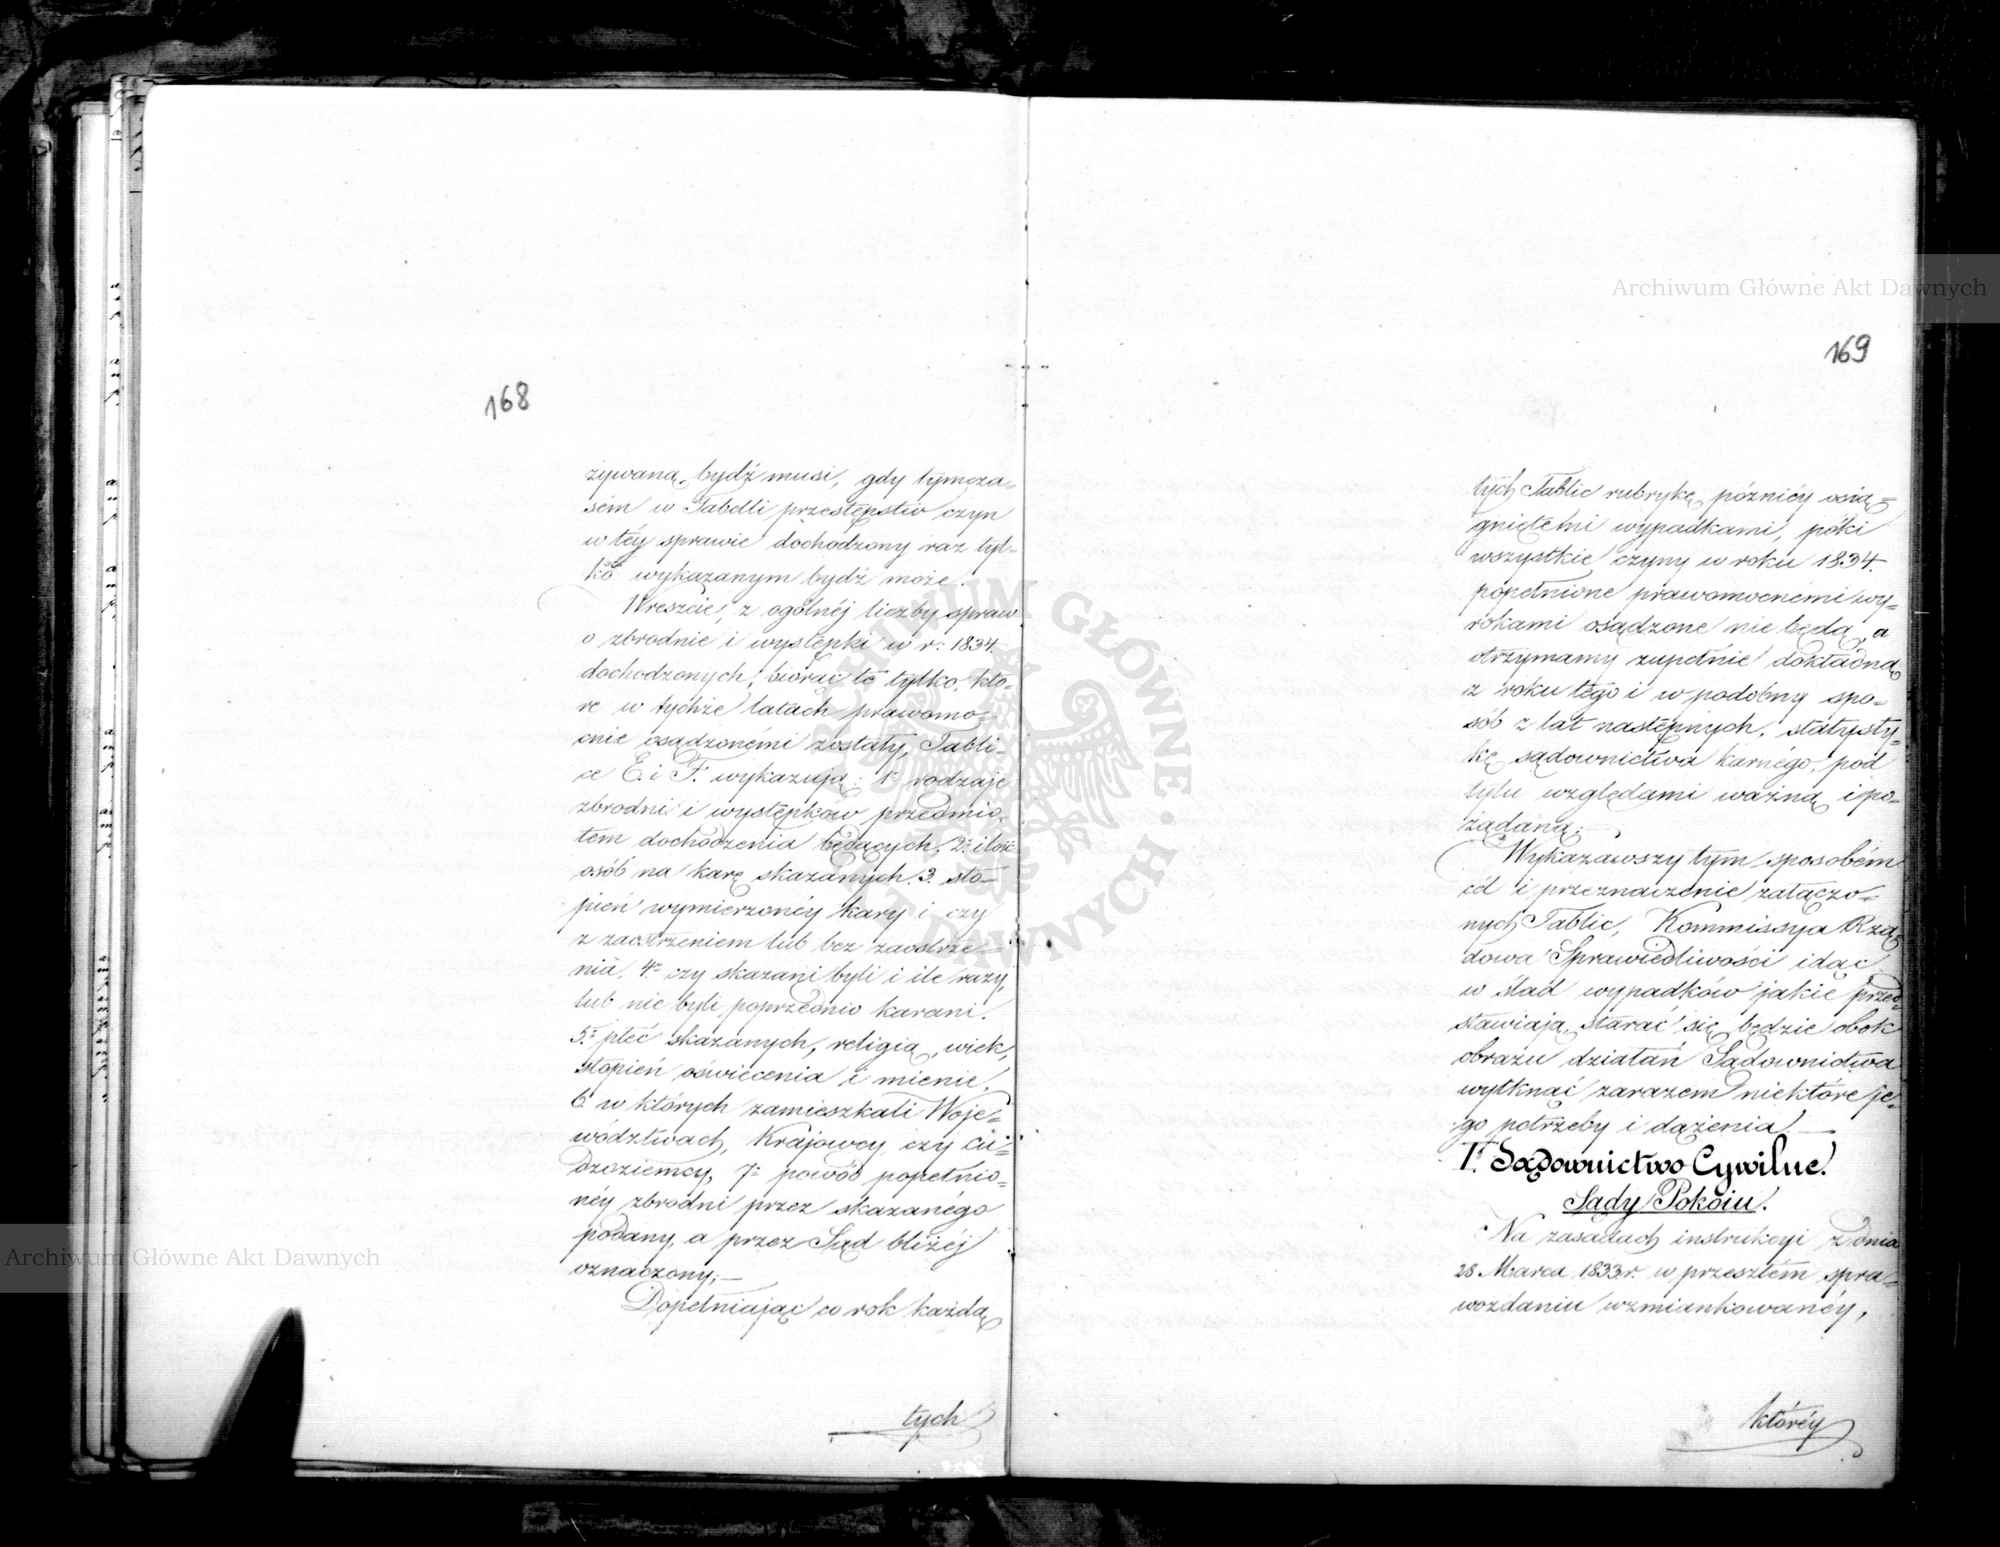 168
żywaną bydź musi, gdy tymcza=
sém w Tabelli przestępstw czyn
w téy sprawie dochodzony raz tyl-
ko wykazanym bydź może.
Wreszcie, z ogólnéj liczby spraw
o zbrodnie i występki w r: 1834.
dochodzonych, biorąc te tylko, któ-
re w tychże latach prawomo-
cnie osądzonémi zostały, Tabli-
ce E. i F. wykazują: 1º rodzaje
zbrodni i występków przedmio-
tem dochodzenia będących, 2º ilość
osób na karę skazanych. 3. sto-
pień wymierzonéy kary i czy
z zaostrzeniem lub bez zaostrze-
nia, 4º czy skazani byli i ile razy,
lub nie byli poprzednio karani.
5º płeć skazanych, religią, wiek,
stopień oświecenia i mienie.
6 w których zamieszkali Woje=
wództwach, Krajowcy czy Cu=
dzoziemcy, 7º powód popełnio-
néy zbrodni przez skazanégo
podany, a przez Sąd bliżéj
oznaczony;—
Dopełniając co rok każdą
tych
169
tych Tablic rubrykę późniéy osią=
gniętémi wypadkami, póki
wszystkie czyny w roku 1834.
popełnione prawomocnémi wy-
rokami osądzone nie będą, a
otrzymamy zupełnie dokładną
z roku tego i w podobny spo-
sób z lat następnych, statysty-
kę sądownictwa karnégo, pod
tylu względami ważną i po-
żądaną.—
Wykazawszy tym sposobém
cél i przeznaczenie załączo-
nych Tablic, Kommissya Rzą-
dowa Sprawiedliwości idąc
w ślad wypadków jakie przed-
stawiają, starać się będzie obok
obrazu działań Sądownictwa
wytknąć zarazem niektóre je-
go potrzeby i dążenia.—
I. Sądownictwo Cywilne.
Sądy Pokoiu.
Na zasadach instrukcyi z dnia
28 Marca 1833.r. w przeszłém spra-
wozdaniu wzmiankowanéy,
któréy
Archiwum Główne Akt Dawnych
Archiwum Główne Akt Dawnych
ARCHIWUM GŁÓWNE AKT DAWNYCH